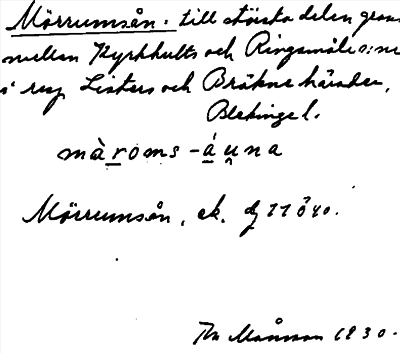 Mörrumsån: till största delen gräns
mellan Kyrkhults och Ringamåla s:nar
i resp. Listers och Bräkne härader,
Blekinge l.
màroms-áuna
Mörrumsån, ek. bl 11840.
Th Månsson 1930.